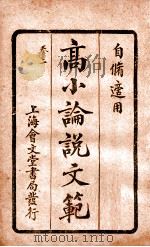 自脩適用
高小論説文範
上海會文堂書局發行